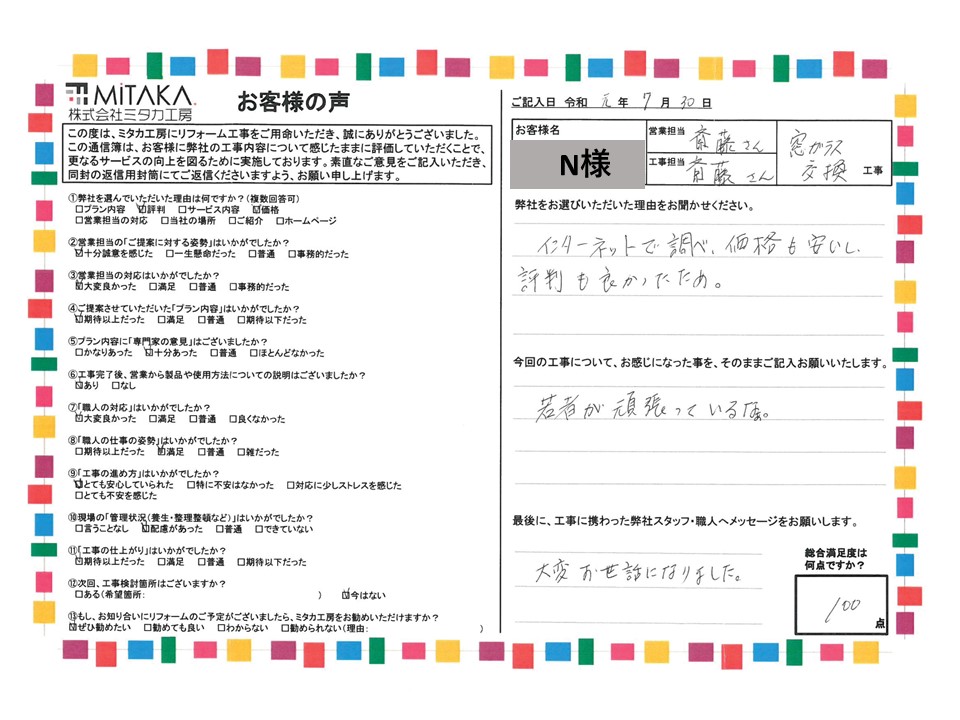 MiTAKA
株式会社ミタカ工房
お客様の声
この度は、ミタカ工房にリフォーム工事をご用命いただき、誠にありがとうございました。
この通信簿は、お客様に弊社の工事内容について感じたままに評価していただくことで、
更なるサービスの向上を図るために実施しております。素直なご意見をご記入いただき、
同封の返信用封筒にてご返信くださいますよう、お願い申し上げます。
①弊社を選んでいただいた理由は何ですか?(複数回答可)
□プラン内容 ☑評判 □サービス内容 ☑価格
□営業担当の対応 □当社の場所 □ご紹介 □ホームページ
②営業担当の「ご提案に対する姿勢」はいかがでしたか?
☑十分誠意を感じた □一生懸命だった □普通 □事務的だった
③営業担当の対応はいかがでしたか?
☑大変良かった □満足 □普通 □事務的だった
④ご提案させていただいた「プラン内容」はいかがでしたか?
☑期待以上だった □満足 □普通 □期待以下だった
⑤プラン内容に「専門家の意見」はございましたか?
□かなりあった ☑十分あった □普通 □ほとんどなかった
⑥工事完了後、営業から製品や使用方法についての説明はございましたか?
☑あり □なし
⑦「職人の対応」はいかがでしたか?
☑大変良かった □満足 □普通 □良くなかった
⑧「職人の仕事の姿勢」はいかがでしたか?
□期待以上だった ☑満足 □普通 □雑だった
⑨「工事の進め方」はいかがでしたか?
☑とても安心していられた □特に不安はなかった □対応に少しストレスを感じた
□とても不安を感じた
⑩現場の「管理状況(養生・整理整頓など)」はいかがでしたか?
□言うことなし ☑配慮があった □普通 □できていない
⑪「工事の仕上がり」はいかがでしたか?
☑期待以上だった □満足 □普通 □期待以下だった
⑫次回、工事検討箇所はございますか?
□ある(希望箇所: ) ☑今はない
⑬もし、お知り合いにリフォームのご予定がございましたら、ミタカ工房をお勧めいただけますか?
☑ぜひ勧めたい □勧めても良い □わからない □勧められない(理由: )
ご記入日 令和 元 年 7 月 30 日
お客様名
N様
営業担当 斎藤さん
工事担当 斎藤さん
窓ガラス
交換 工事
弊社をお選びいただいた理由をお聞かせください。
インターネットで調べ、価格も安いし、
評判も良かったため。
今回の工事について、お感じになった事を、そのままご記入お願いいたします。
若者が頑張っているな。
最後に、工事に携わった弊社スタッフ・職人へメッセージをお願いします。
大変お世話になりました。
総合満足度は
何点ですか?
100 点